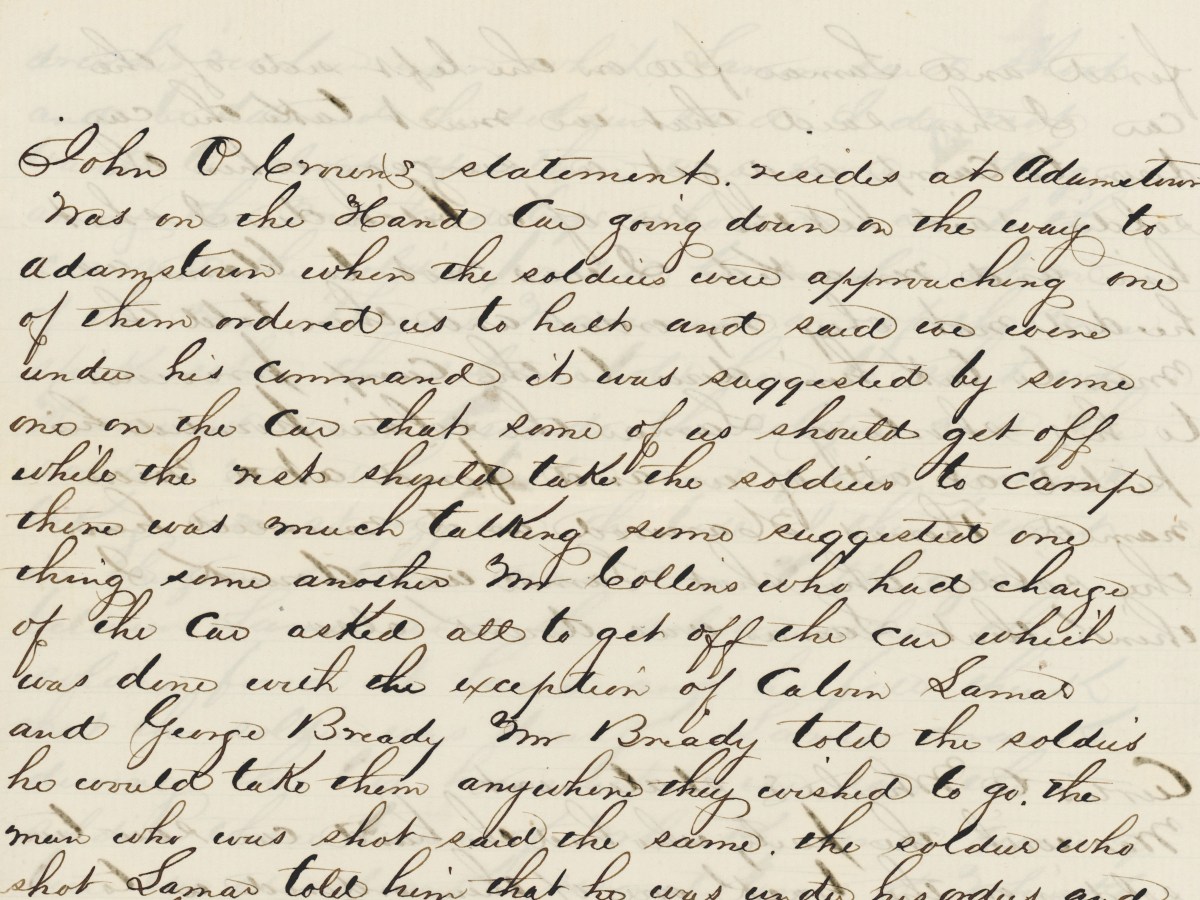 John P Crown's statement. resides at Adamstown
Was on the Hand Car going down on the way to
Adamstown when the soldiers were approaching one
of them ordered us to halt and said we were
under his command it was suggested by some
one on the Car that some of us should get off
while the rest should take the soldiers to camp
there was much talking some suggested one
thing some another Mr Collins who had charge
of the Car asked all to get off the car which
was done with the exception of Calvin Lamar
and George Bready Mr Bready told the soldiers
he would take them anywhere they wished to go. the
man who was shot said the same. the soldier who
shot Lamar told him that he was under his orders and